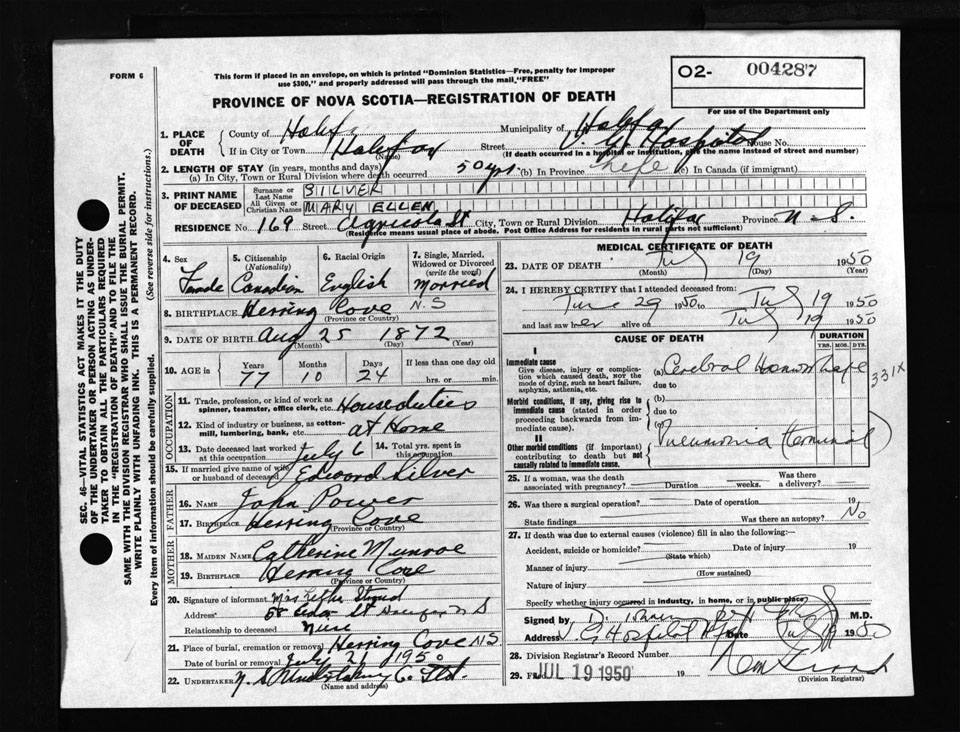 FORM 6
This form if placed in an envelope, on which is printed "Dominion Statistics—Free, penalty for improper
use $300," and properly addressed will pass through the mail, "FREE"
O2- 004287
For use of the Department only
PROVINCE OF NOVA SCOTIA—REGISTRATION OF DEATH
1. PLACE OF DEATH
County of Halifax Municipality of Halifax
If in City or Town Halifax (Name) Street V. G. Hospital House No.
(If death occurred in a hospital or institution, give the name instead of street and number)
2. LENGTH OF STAY (in years, months and days)
(a) In City, Town or Rural Division where death occurred 50 yrs. (b) In Province life (c) In Canada (if immigrant)
3. PRINT NAME OF DECEASED
Surname or Last Name SIILVER
All Given or Christian Names MARY ELLEN
RESIDENCE No. 169 Street Agricola St City, Town or Rural Division Halifax Province N-S.
(Residence means usual place of abode. Post Office Address for residents in rural parts not sufficient)
4. Sex Female
5. Citizenship (Nationality) Canadian
6. Racial Origin English
7. Single, Married, Widowed or Divorced (write the word) Married
8. BIRTHPLACE Herring Cove N S
(Province or Country)
9. DATE OF BIRTH Aug 25 1872
(Month) (Day) (Year)
10. AGE in Years 77 Months 10 Days 24 If less than one day old hrs. or min.
OCCUPATION
11. Trade, profession, or kind of work as spinner, teamster, office clerk, etc. House duties
12. Kind of industry or business, as cotton-mill, lumbering, bank, etc. at Home
13. Date deceased last worked at this occupation July 6 14. Total yrs. spent in this occupation
15. If married give name of wife or husband of deceased Edward Silver
FATHER
16. NAME John Power
17. BIRTHPLACE Herring Cove
(Province or Country)
MOTHER
18. MAIDEN NAME Catherine Munroe
19. BIRTHPLACE Herring Cove
(Province or Country)
20. Signature of informant Mrs
Address 58 St Halifax N S
Relationship to deceased
21. Place of burial, cremation or removal Herring Cove NS
Date of burial or removal July 21 1950
22. UNDERTAKER N. S. Undertaking Co. Ltd.
(Name and address)
MEDICAL CERTIFICATE OF DEATH
23. DATE OF DEATH July 19 1950
(Month) (Day) (Year)
24. I HEREBY CERTIFY that I attended deceased from:
June 29 1950 to July 19 1950
and last saw her alive on July 19 1950
CAUSE OF DEATH
DURATION
YRS. MOS. DYS.
I
Immediate cause
Give disease, injury or complication which caused death, not the mode of dying, such as heart failure, asphyxia, asthenia, etc.
(a) Cerebral Hemorrhage
331X
due to
Morbid conditions, if any, giving rise to immediate cause (stated in order proceeding backwards from immediate cause).
(b)
due to
(c)
II
Other morbid conditions (if important) contributing to death but not causally related to immediate cause.
Pneumonia (terminal)
25. If a woman, was the death associated with pregnancy? Duration weeks. Was there a delivery?
26. Was there a surgical operation? Date of operation 19
State findings Was there an autopsy? No
27. If death was due to external causes (violence) fill in also the following:—
Accident, suicide or homicide? Date of injury 19
(State which)
Manner of injury
(How sustained)
Nature of injury
Specify whether injury occurred in industry, in home, or in public place
Signed by D. M.D.
Address V. G. Hospital Date July 19 1950
28. Division Registrar's Record Number
29. Filed JUL 19 1950 19
(Division Registrar)
SEC. 46—VITAL STATISTICS ACT MAKES IT THE DUTY
OF THE UNDERTAKER OR PERSON ACTING AS UNDER-
TAKER TO OBTAIN ALL THE PARTICULARS REQUIRED
IN THE "REGISTRATION OF DEATH" AND TO FILE THE
SAME WITH THE DIVISION REGISTRAR WHO SHALL ISSUE THE BURIAL PERMIT.
WRITE PLAINLY WITH UNFADING INK. THIS IS A PERMANENT RECORD.
Every item of information should be carefully supplied. (See reverse side for instructions.)